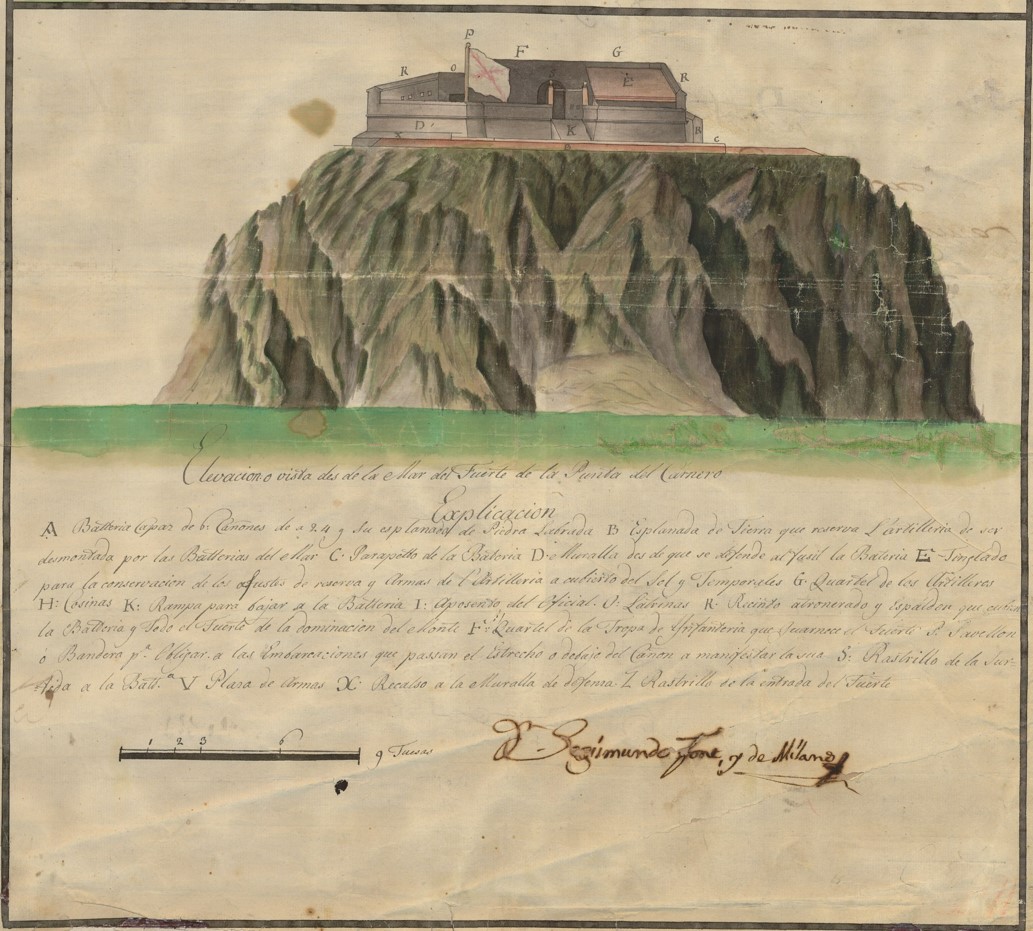 P
F G
R O E R
S
D K R
X B C
Elevacion o vista des de la Mar del Fuerte de la Punta del Carnero
Explicacion
A Batteria Capaz de 6 Cañones de a 24 y su esplanada de Piedra Labrada B Esplanada de Tierra que reserva l'artilleria de ser
desmontada por las Batterias del Mar C Parapetto de la Bateria D Muralla des de que se defiende al fusil la Bateria E Tinglado
para la conservacion de los afustes de reserva y Armas de l'Artilleria a cubierto del Sol y Temporales G Quartel de los Artilleros
H: Cosinas K: Rampa para bajar a la Batteria I: Aposento del Oficial. O: Laternas R: Recinto atronerado y Espaldon que cubre
la Batteria y todo el Fuerte de la dominacion del Monte F: Quartel de la Tropa de Infanteria que Guarnece el Fuerte P. Pavellon
o Bandera pª. Obligar a las Embarcaciones que passan el Estrecho o debajo del Cañon a manifestar la sua S: Rastrillo de la Sur-
tida a la Batt.ª V Plaza de Armas X: Recalso a la Muralla de defensa Z Rastrillo de la entrada del Fuerte
1 2 3 6 9 Tuesas
Dn. Segismundo Font, y de Milans